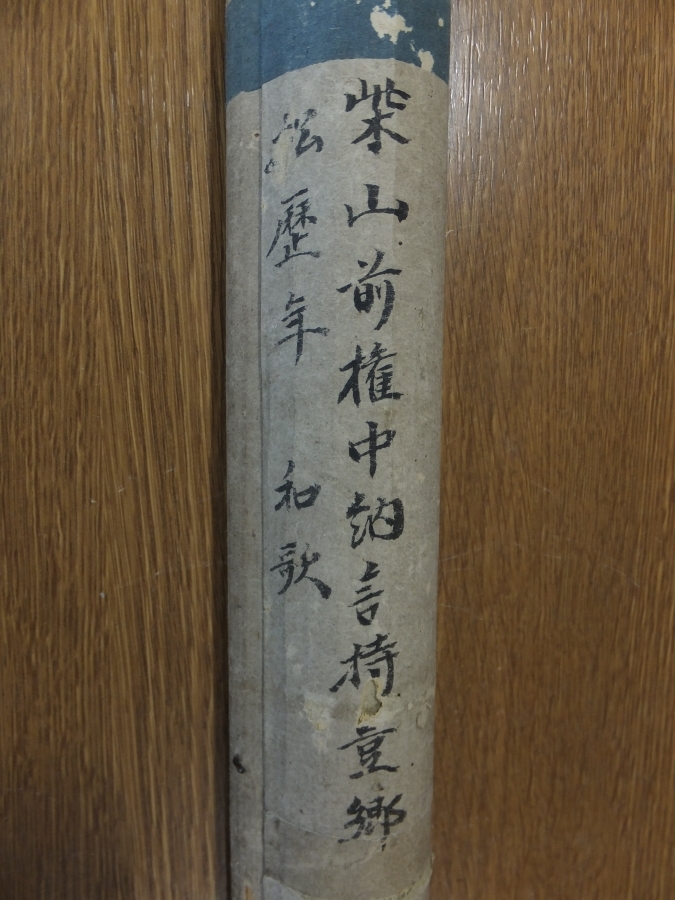 柴山前権中納言持豊郷
松歴年 和歌